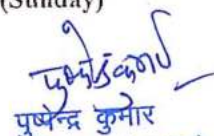 (Sunday)
पुष्पेन्द्र कुमार